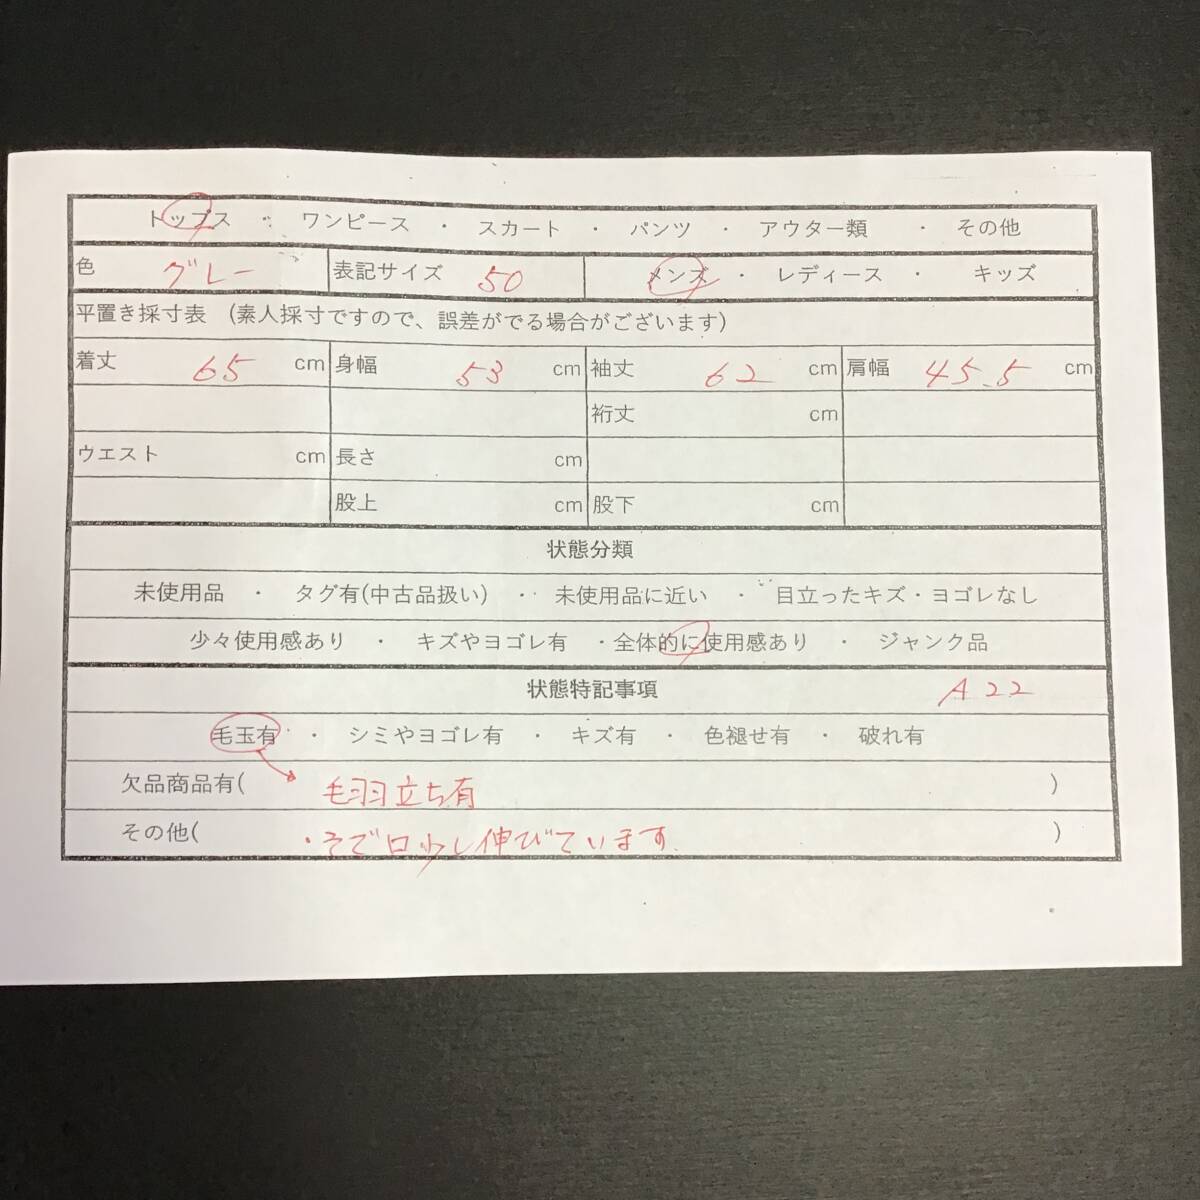 トップス ・ ワンピース ・ スカート ・ パンツ ・ アウター類 ・ その他
色 グレー 表記サイズ 50 メンズ ・ レディース ・ キッズ
平置き採寸表 (素人採寸ですので、誤差がでる場合がございます)
着丈 65 cm 身幅 53 cm 袖丈 62 cm 肩幅 45.5 cm
裄丈 cm
ウエスト cm 長さ cm
股上 cm 股下 cm
状態分類
未使用品 ・ タグ有(中古品扱い) ・ 未使用品に近い ・ 目立ったキズ・ヨゴレなし
少々使用感あり ・ キズやヨゴレ有 ・全体的に使用感あり ・ ジャンク品
状態特記事項 A22
毛玉有 ・ シミやヨゴレ有 ・ キズ有 ・ 色褪せ有 ・ 破れ有
欠品商品有( 毛羽立ち有 )
その他( ・そで口少し伸びています. )